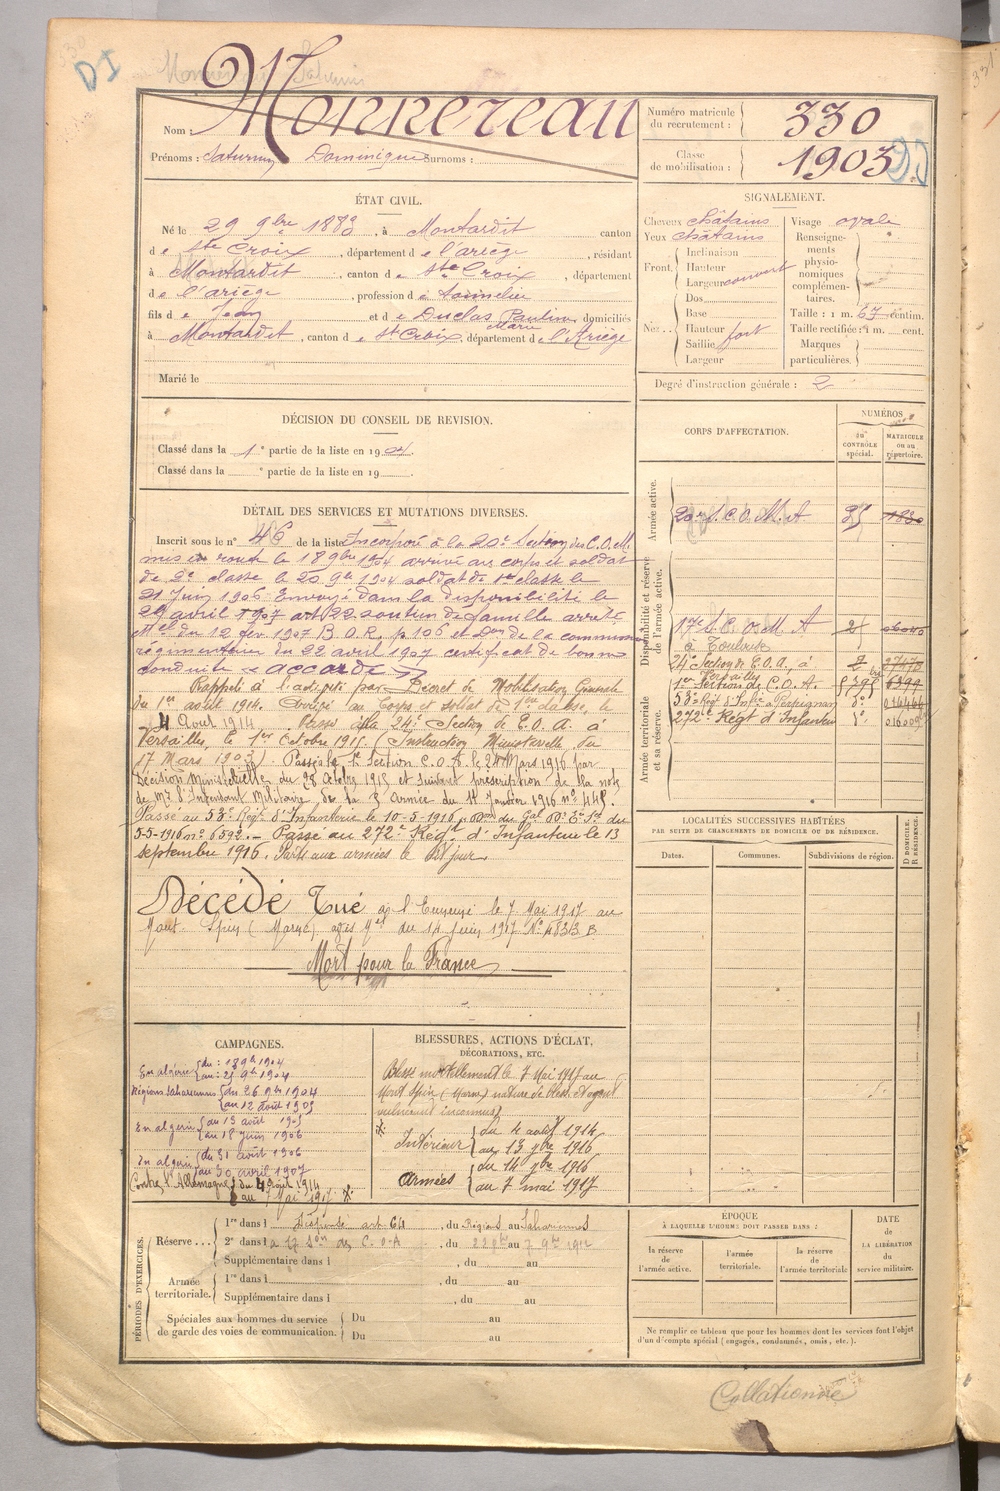 DI
Monnereau
Nom :
Prénoms : Saturnin Dominique Surnoms :
Numéro matricule du recrutement : 330
Classe de mobilisation : 1903
ÉTAT CIVIL.
Né le 29 9bre 1883, à Montardit canton
de Ste Croix, département de l'ariège, résidant
à Montardit, canton de Ste Croix, département
de l'ariège, profession de tonnelier
fils de Jean et de Duclos Pauline Marie domiciliés
à Montardit, canton de Ste Croix, département de l'Ariège
Marié le
SIGNALEMENT.
Cheveux châtains
Yeux châtains
Front. Inclinaison
Hauteur
Largeur couvert
Nez... Dos
Base
Hauteur
Saillie fort
Largeur
Visage ovale
Renseignements physionomiques complémentaires.
Taille : 1 m. 67 centim.
Taille rectifiée : 1 m. cent.
Marques particulières.
Degré d'instruction générale : 2
DÉCISION DU CONSEIL DE REVISION.
Classé dans la 1e partie de la liste en 1904.
Classé dans la ° partie de la liste en 19
DÉTAIL DES SERVICES ET MUTATIONS DIVERSES.
Inscrit sous le n° 46 de la liste Incorporé à la 20e Section des C.O.M.
mis en route le 18 9bre 1904 arrivé au corps et soldat
de 2e classe le 20 9bre 1904 soldat de 1re classe le
21 Juin 1906 Envoyé dans la disponibilité le
29 avril 1907 art 22 soutien de famille arrêté
Mel du 12 fev 1907 B.O.R. p 106 et Don de la commission
régimentaire du 22 avril 1907 certificat de bonne
conduite « accordé »
Rappelé à l'activité par Décret de Mobilisation Générale
du 1er août 1914. Arrivé au Corps et soldat de 1ère classe, le
4 Août 1914. Passé à la 24e Section de C.O.A. à
Versailles, le 1er Octobre 1915 (Instruction Ministérielle du
17 Mars 1902). Passé à la 1e Section C.O.A. le 24 Mars 1916 par
Décision Ministérielle du 28 Octobre 1915 et suivant prescription de la note
de Mr l'Intendant Militaire, de la 3 Armée du 14 Janvier 1916 n° 445.
Passé au 53e Régt d'Infanterie le 10-5-1916 du Gal du
5-5-1916 n° 6592. - Passé au 272e Régt d'Infanterie le 13
septembre 1916. Parti aux armées le dit jour.
Décédé Tué à l'Ennemi le 7 Mai 1917 au
Mont-Spin (Marne), avis Mel du 14 Juin 1917 N° 4833 B
Mort pour la France
CORPS D'AFFECTATION.
NUMÉROS
au CONTRÔLE spécial.
MATRICULE ou au répertoire.
Armée active.
20e S. C. O. M. A 35 1830
Disponibilité et réserve de l'armée active.
17e S. C. O. M. A
à Toulouse
24e Section de C.O.A., à Versailles
1er Section de C.O.A. 6399
53e Régt d'Inf. à Perpignan
272e Régt d'Infanterie
Armée territoriale et sa réserve.
LOCALITÉS SUCCESSIVES HABITÉES
PAR SUITE DE CHANGEMENTS DE DOMICILE OU DE RÉSIDENCE.
Dates.
Communes.
Subdivisions de région.
D DOMICILE.
R RÉSIDENCE.
CAMPAGNES.
En algérie du : 18 9b 1904
au : 25 9b 1904
Régions Sahariennes du 26 9b 1904
au 12 août 1905
En algérie du 13 août 1905
au 18 juin 1906
En algérie du 31 août 1906
au 30 avril 1907
Contre l'Allemagne du 4 août 1914
au 7 Mai 1917
BLESSURES, ACTIONS D'ÉCLAT,
DÉCORATIONS, ETC.
Blessé mortellement le 7 Mai 1917 au
Mont Spin (Marne) nature de bless. et agent
vulnérant inconnus
Intérieur du 4 août 1914
au 13 7bre 1916
Armées du 14 7bre 1916
au 7 mai 1917
PÉRIODES D'EXERCICES.
Réserve ... 1re dans l Dispensé art. 64, du Régions au Sahariennes
2e dans la 17 Son des C.O.A, du 22 au 7 9b 1912
Supplémentaire dans l , du au
Armée territoriale. 1re dans l , du au
Supplémentaire dans l , du au
Spéciales aux hommes du service de garde des voies de communication. Du au
Du au
ÉPOQUE
À LAQUELLE L'HOMME DOIT PASSER DANS :
la réserve de l'armée active.
l'armée territoriale.
la réserve de l'armée territoriale
DATE de LA LIBÉRATION du service militaire.
Ne remplir ce tableau que pour les hommes dont les services font l'objet
d'un décompte spécial (engagés, condamnés, omis, etc.).
Collationné